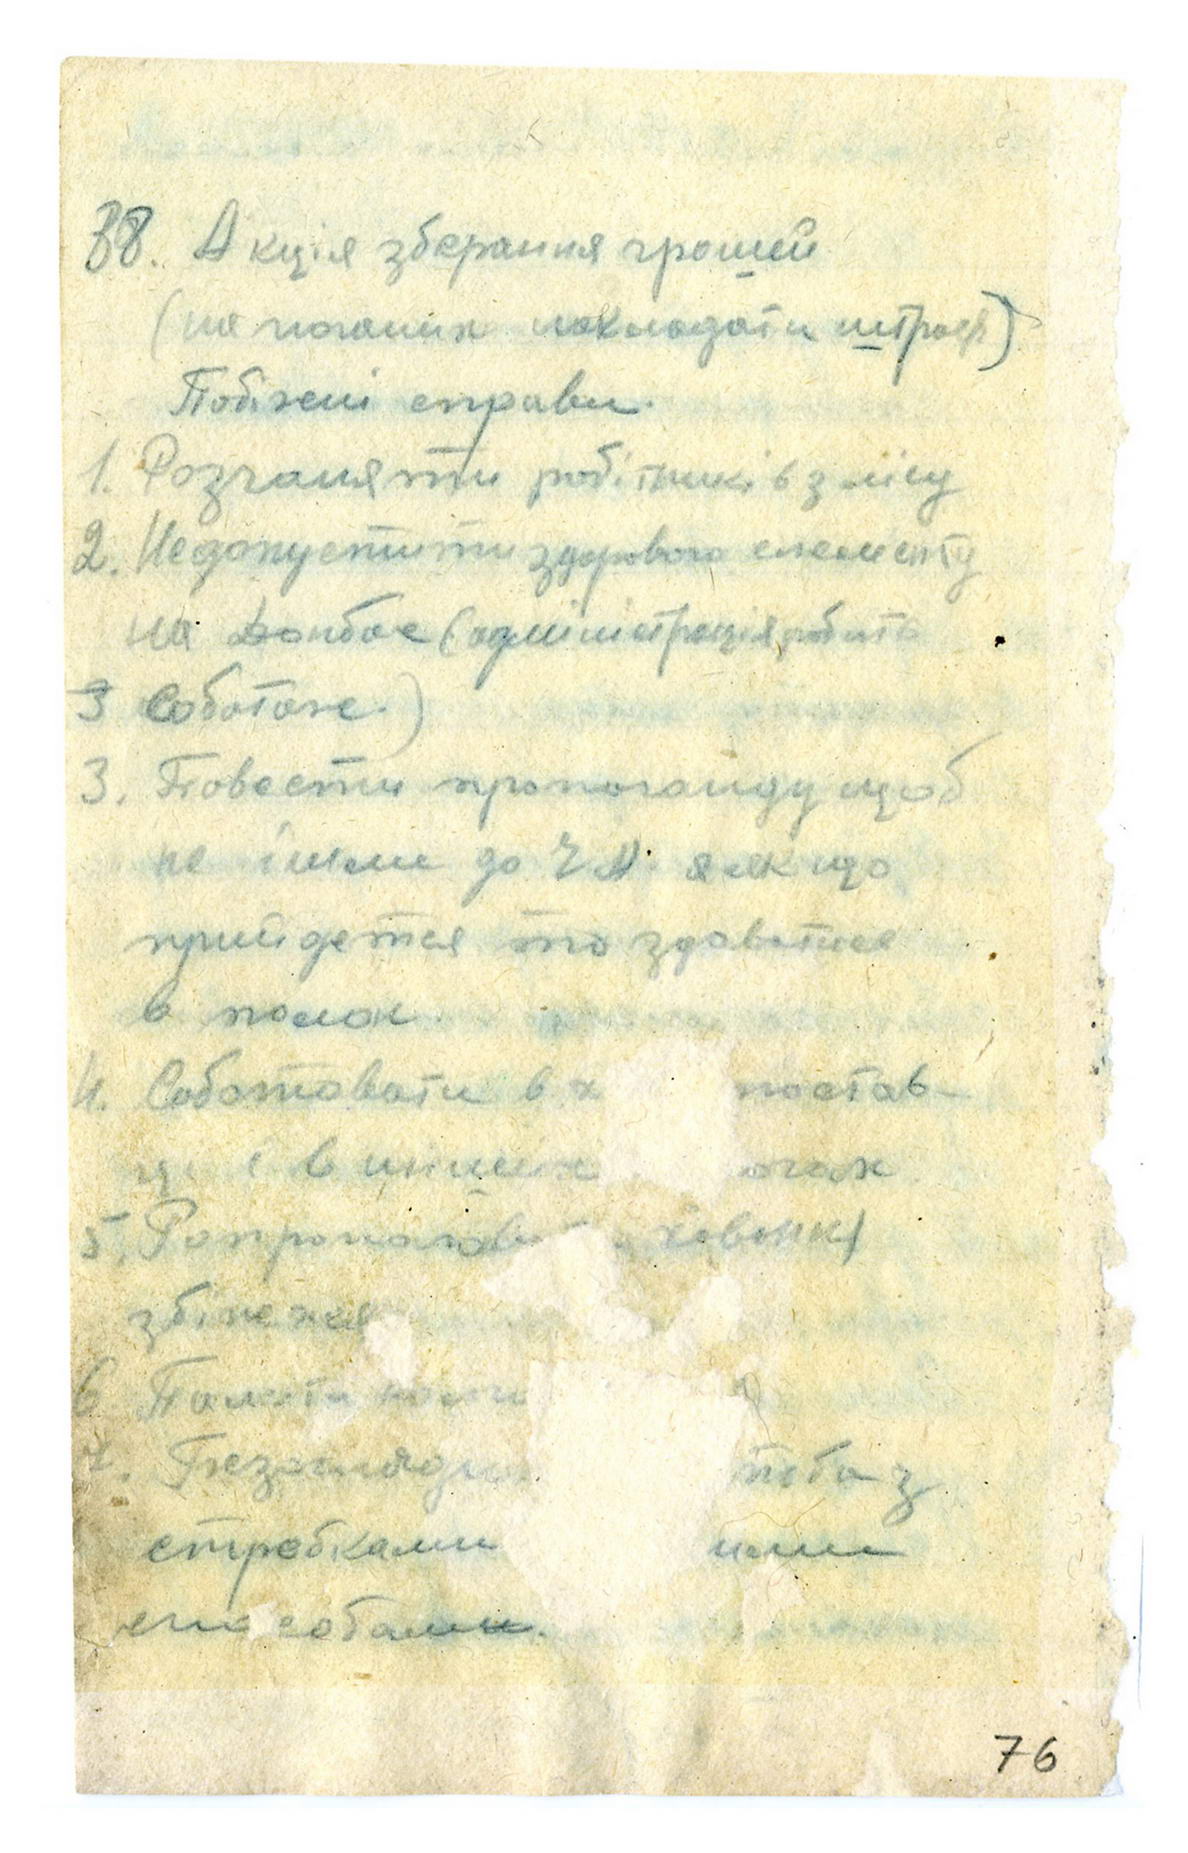 38. Акція збераиня грошей
(на поганих накладати штраф)
Побіжні справи.
1. Розганяти робітників з лісу
2. Недопустити здорового елементу
на Донбас (адміністрація робить
3 саботаж.)
3. Повести пропоганду щоб
не ішли до Ч.А. а як що
прийдется то здаватися
в полон
4. Саботовати в х постав-
ці і в инших
5. ховонки
збіжжя
6 Палити
7. тьба з
стребками
способами.
76